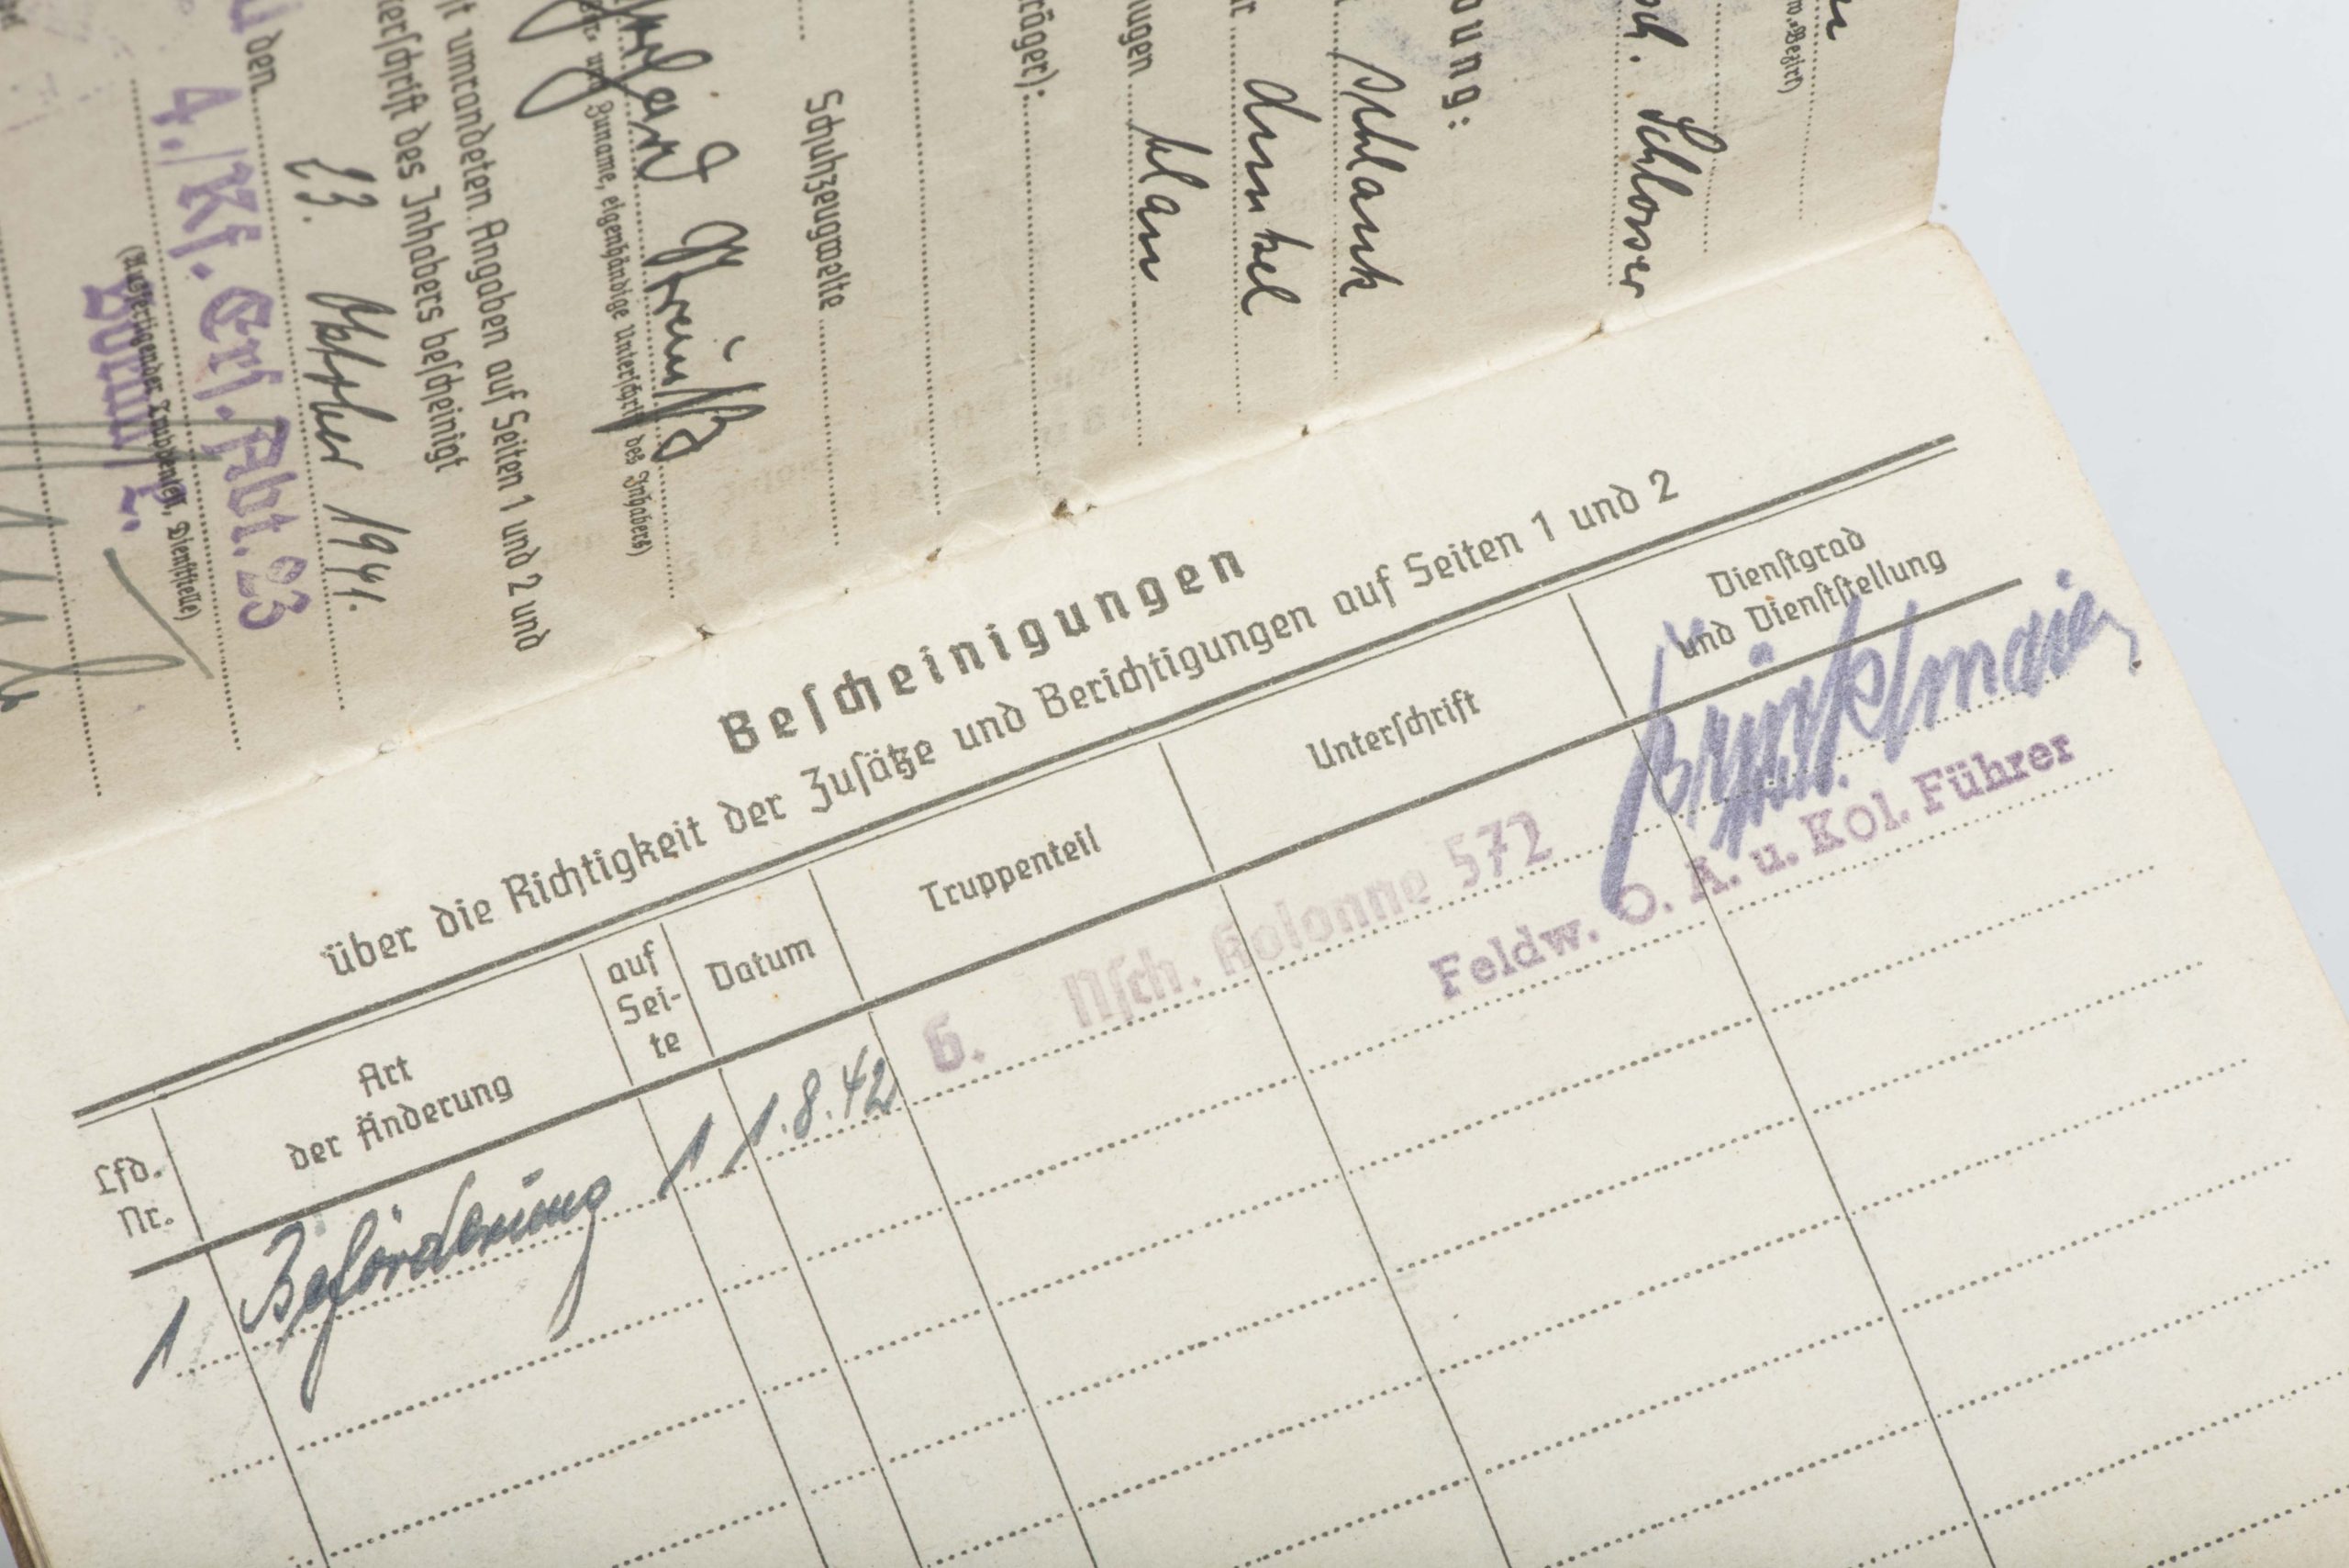 Bescheinigungen
über die Richtigkeit der Zusätze und Berichtigungen auf Seiten 1 und 2
Lfd. Nr.
Art der Änderung
auf Sei- te
Datum
Truppenteil
Unterschrift
Dienstgrad und Dienststellung
1 Beförderung 1 1.8.42 6. Nsch. Kolonne 572
Feldw. O. A. u. Kol. Führer
w.-Bezirk)
sch. Schlosser
ung:
schlank
dunkel
ugen blau
räger):
Schuhzeugweite
und Zuname, eigenhändige Unterschrift des Inhabers)
t umrandeten Angaben auf Seiten 1 und 2 und
erschrift des Inhabers bescheinigt
den 23. Oktober 1941.
4./Kf. Ers. Abt. 23
(Ausfertigender Truppenteil, Dienststelle)